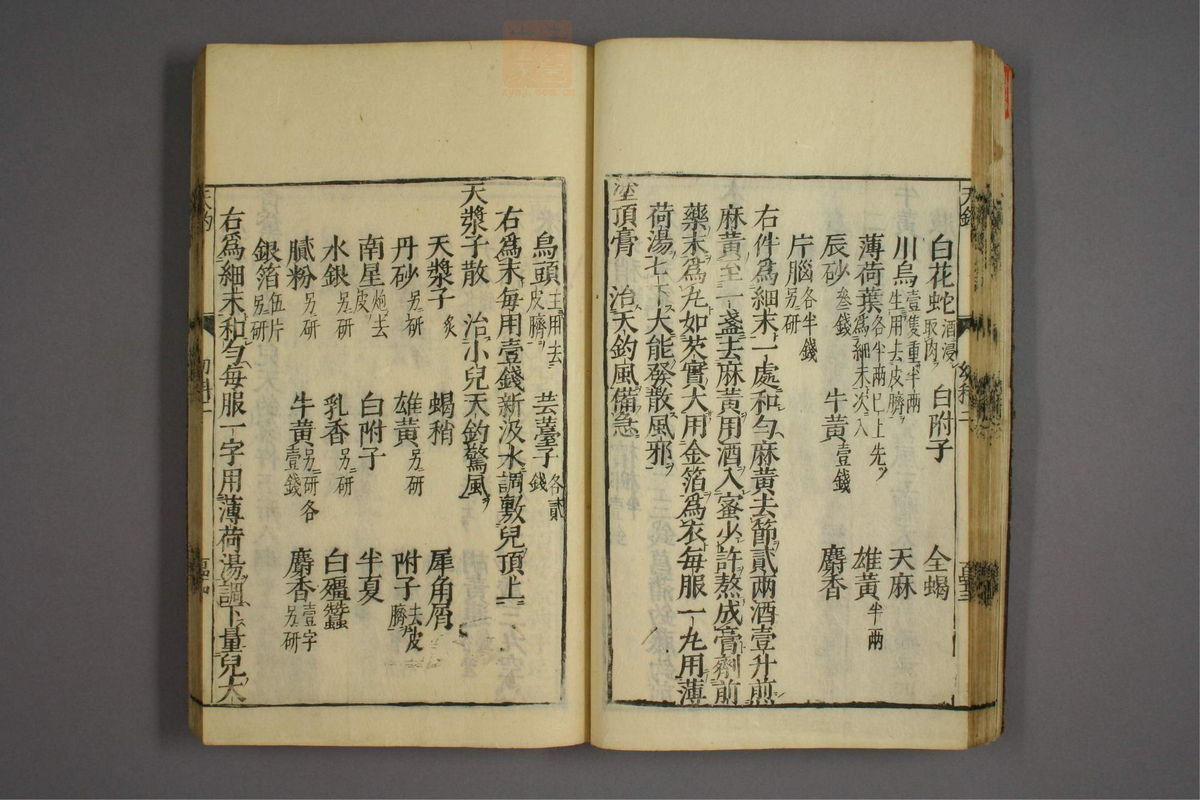 白花蛇酒浸取肉 白附子 全蝎
川烏壹隻重半兩生用去皮臍 天麻
薄荷葉各半兩已上先爲細末次入 雄黃半兩
辰砂叄錢 牛黃壹錢 麝香
片腦各半錢另研
右件爲細末一處和勻麻黃去節貳兩酒壹升煎
麻黃至一盞去麻黃用酒入蜜少許熬成膏劑前
藥末爲丸如芡實大用金箔爲衣每服一丸用薄
荷湯七下大能發散風邪
塗頂膏 治天釣風備急
烏頭生用去皮臍 芸薹子各貳錢
右爲末每用壹錢新汲水調敷兒頂上
天漿子散 治小兒天釣驚風
天漿子炙 蝎稍 犀角屑
丹砂另研 雄黃另研 附子去皮臍
南星炮去皮 白附子 半夏
水銀另研 乳香另研 白殭蠶
膩粉另研 牛黃另研各壹錢 麝香壹字另研
銀箔伍片另研
右爲細末和勻每服一字用薄荷湯調下量兒大